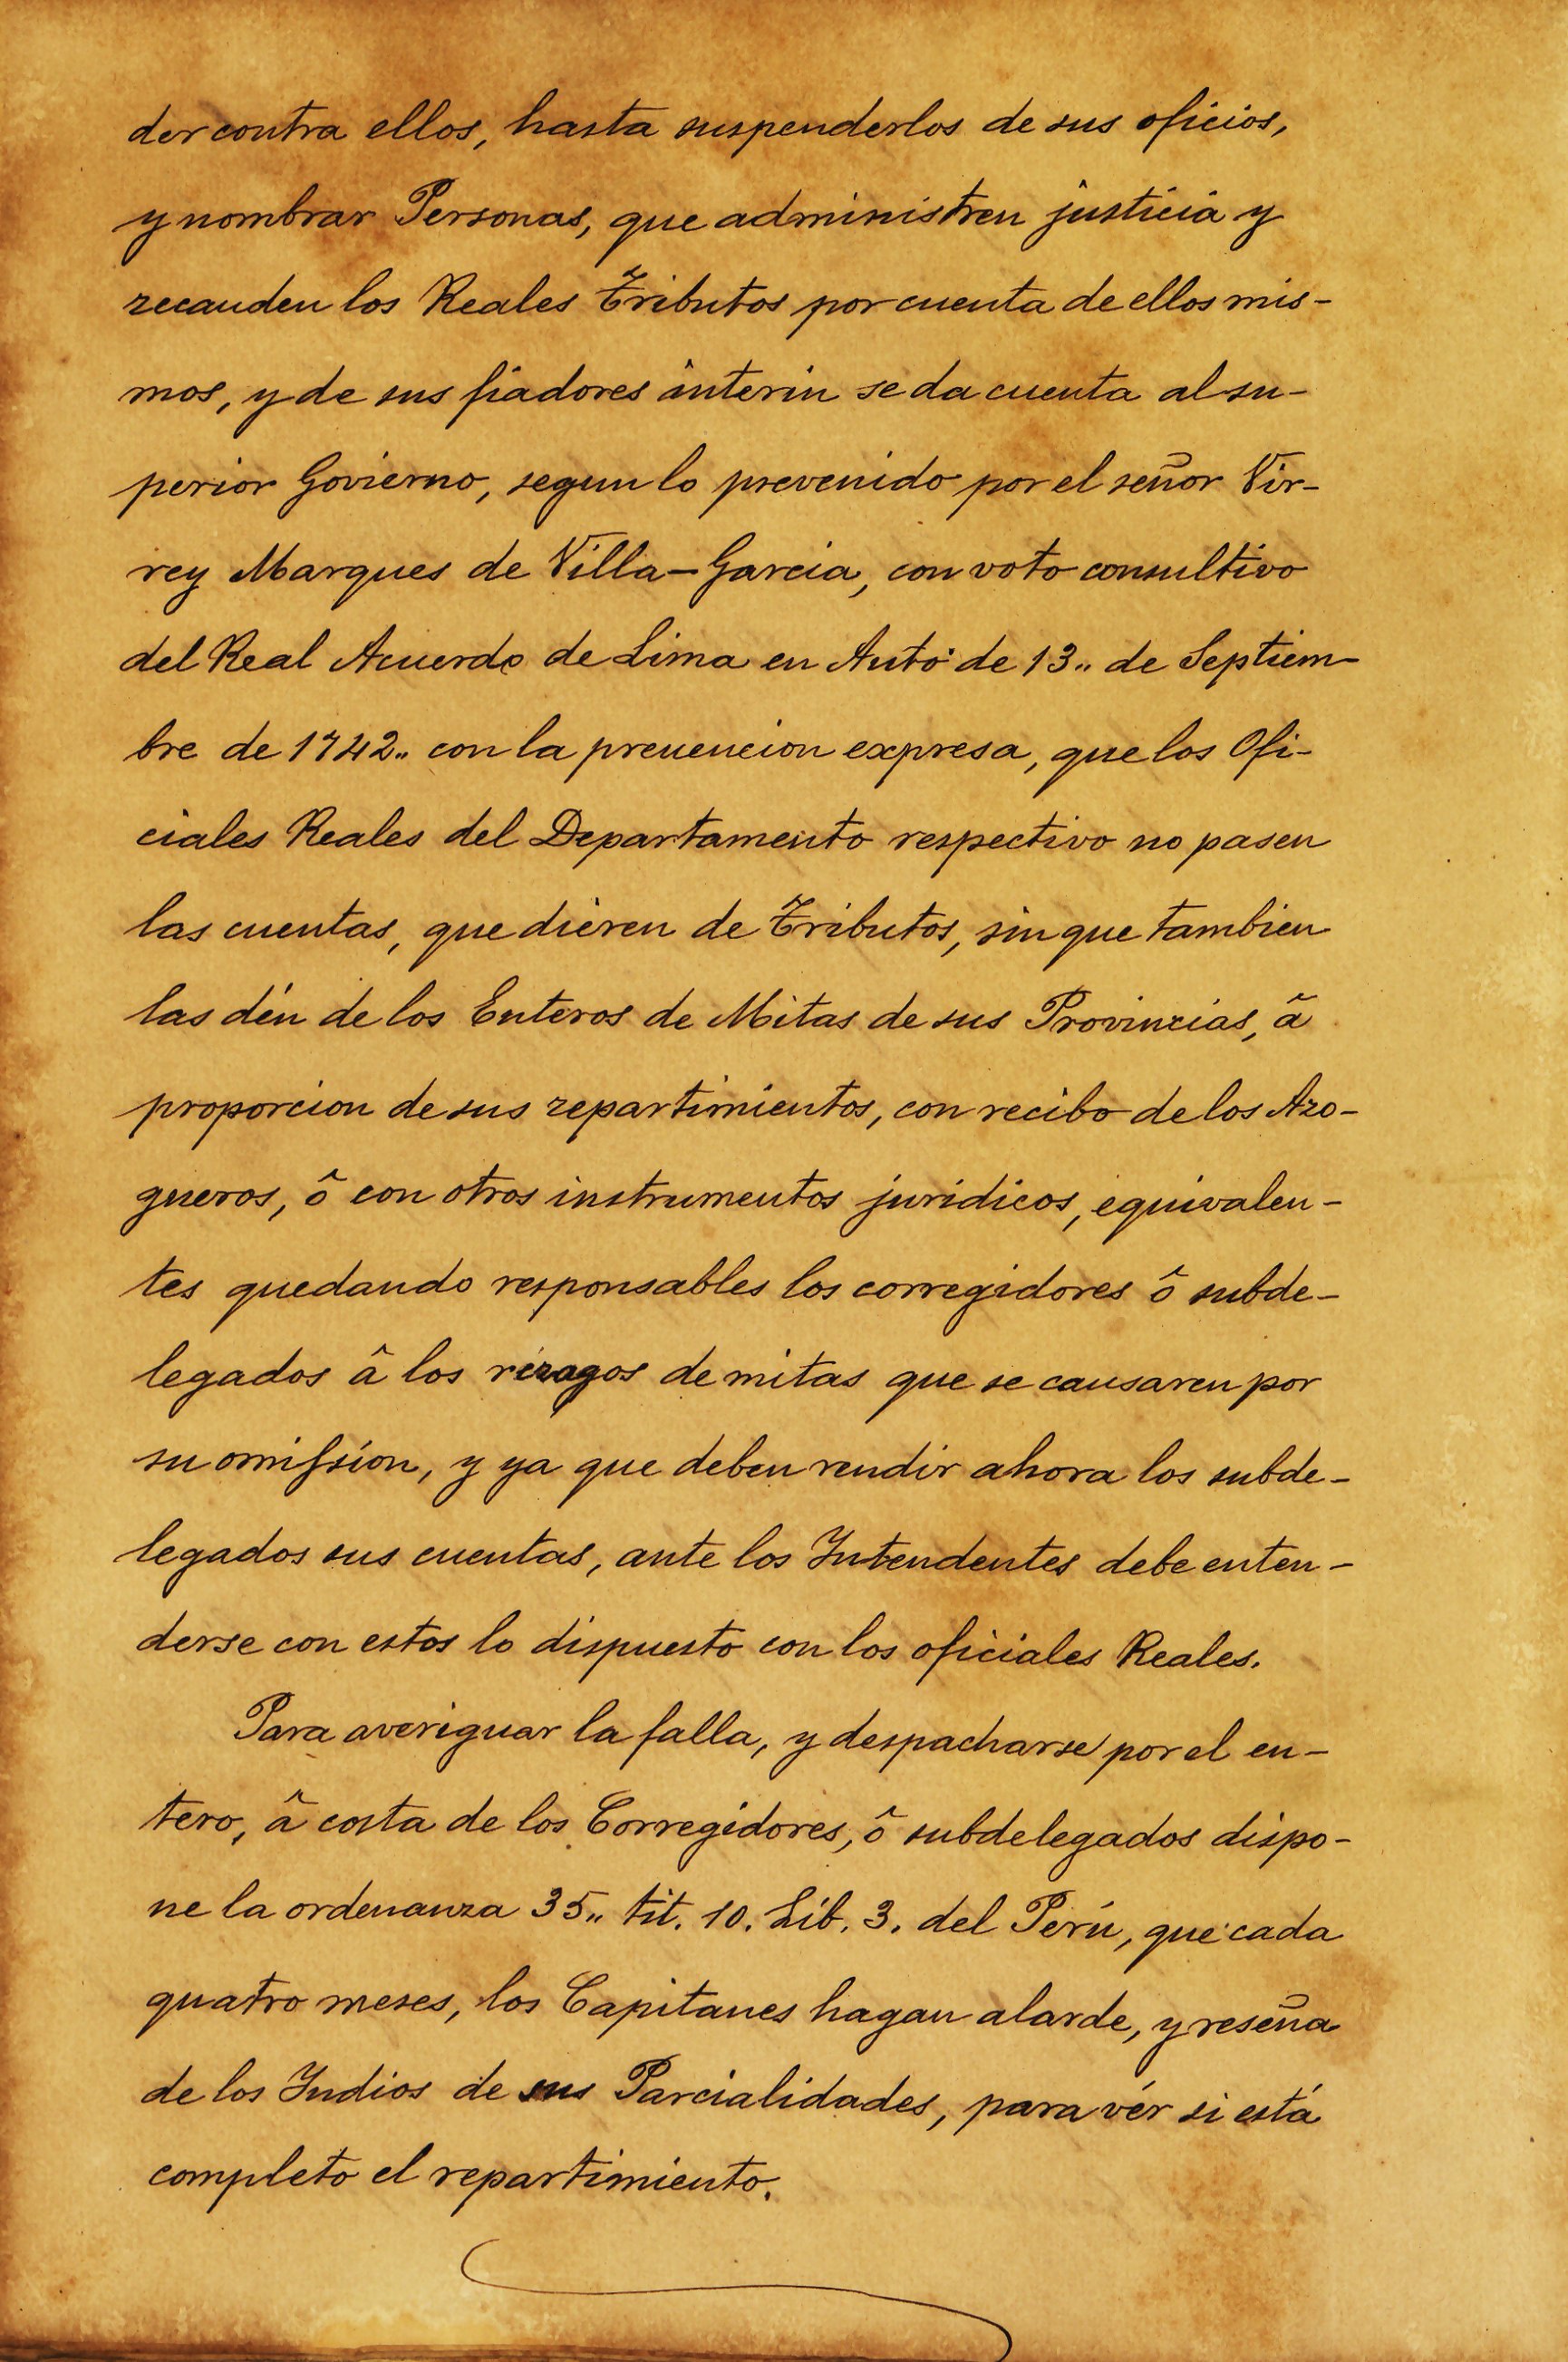 der contra ellos, hasta suspenderlos de sus oficios,
y nombrar Personas, que administren justicia y
recauden los Reales Tributos por cuenta de ellos mis-
mos, y de sus fiadores interin se da cuenta al su-
perior Govierno, segun lo prevenido por el señor Vir-
rey Marques de Villa-Garcia, con voto consultivo
del Real Acuerdo de Lima en Auto de 13.. de Septiem-
bre de 1742.. con la preuencion expresa, que los Ofi-
ciales Reales del Departamento respectivo no pasen
las cuentas, que dieren de Tributos, sin que tambien
las dén de los Enteros de Mitas de sus Provincias, â
proporcion de sus repartimientos, con recibo de los Azo-
gueros, ô con otros instrumentos juridicos, equivalen-
tes quedando responsables los corregidores ô subde-
legados â los rezagos de mitas que se causaren por
su omission, y ya que deben rendir ahora los subde-
legados sus cuentas, ante los Intendentes debe enten-
derse con estos lo dispuesto con los oficiales Reales.
Para averiguar la falla, y despacharse por el en-
tero, â costa de los Corregidores, ô subdelegados dispo-
ne la ordenanza 35.. tit. 10. Lib. 3. del Perú, que cada
quatro meses, los Capitanes hagan alarde, y reseña
de los Indios de sus Parcialidades, para vér si está
completo el repartimiento.